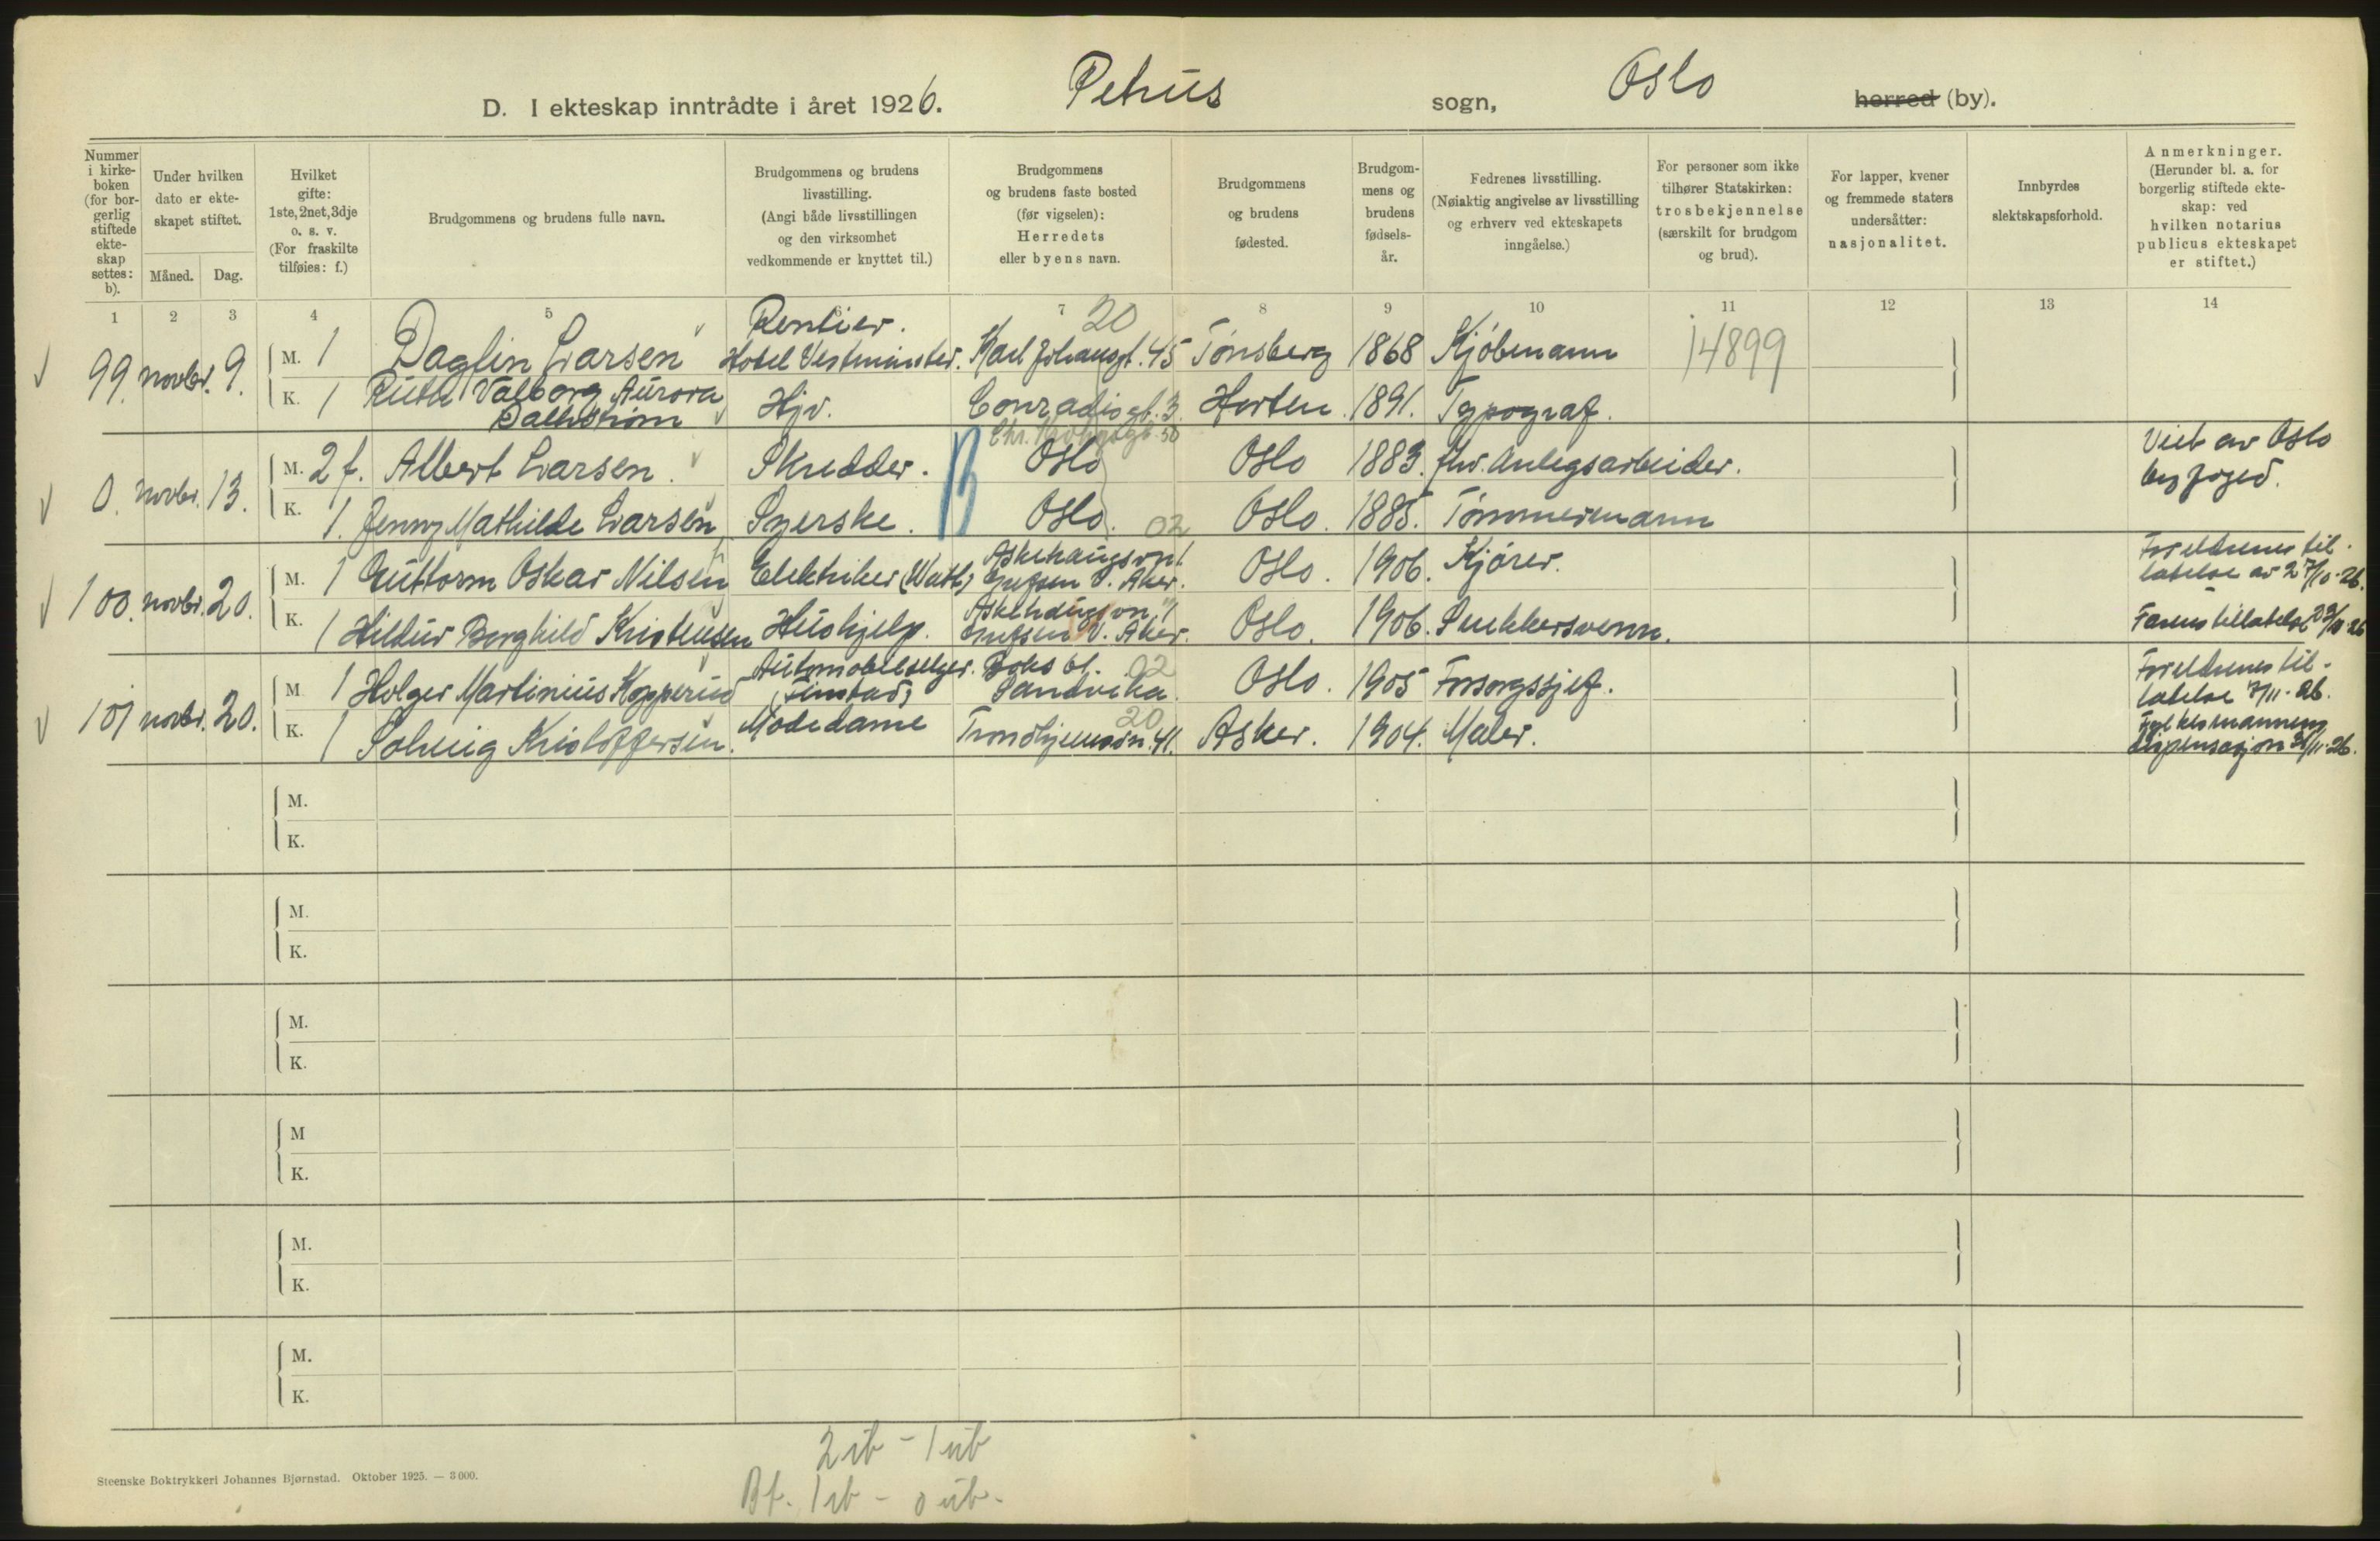 D. I ekteskap inntrådte i året 1926. Petrus sogn, Oslo herred (by).
Nummer i kirkeboken (for borgerlig stiftede ekteskap settes: b).
Under hvilken dato er ekteskapet stiftet.
Måned. Dag.
Hvilket gifte: 1ste, 2net, 3dje o. s. v. (For fraskilte tilføies: f.)
Brudgommens og brudens fulle navn.
Brudgommens og brudens livsstilling. (Angi både livsstillingen og den virksomhet vedkommende er knyttet til.)
Brudgommens og brudens faste bosted (før vigselen): Herredets eller byens navn.
Brudgommens og brudens fødested.
Brudgommens og brudens fødselsår.
Fedrenes livsstilling. (Nøiaktig angivelse av livsstilling og erhverv ved ekteskapets inngåelse.)
For personer som ikke tilhører Statskirken: trosbekjennelse (særskilt for brudgom og brud).
For lapper, kvener og fremmede staters undersåtter: nasjonalitet.
Innbyrdes slektskapsforhold.
Anmerkninger. (Herunder bl. a. for borgerlig stiftede ekteskap: ved hvilken notarius publicus ekteskapet er stiftet.)
1 2 3 4 5 6 7 8 9 10 11 12 13 14
20
Rentier.
99. novbr. 9. M. 1 Daglin Larsen Hotel Vestminster. Karl Johansgt. 45 Tønsberg 1868 Kjøbmann 14899
K. 1 Ruth Valborg Aurora Dahlstrøm Hjv. Conradisgt. 3. Horten. 1891. Typograf.
0. novbr. 13. M. 2 f. Albert Larsen. Skredder. B Oslo Oslo 1883. fhv. Anlegsarbeider. Viet av Oslo byfoged.
K. 1. Jenny Mathilde Larsen Syerske. Oslo. 02 Oslo. 1885. Tømmermann
100. novbr. 20. M. 1 Guttorm Oskar Nilsen Elektriker Askehaugsvn 1 Grefsen V. Aker. Oslo. 1906. Kjører. Foreldrenes tillatelse av 27/10-26.
K. 1 Hildur Borghild Kristensen Hushjelp. Askehaugsvn 1 Grefsen V. Aker. Oslo. 1906. Snekkersvenn. Farens tillatelse
101 novbr. 20. M. 1 Holger Martinius Kopperud Automobilselger. Boks 61. Sandvika. 02 Oslo. 1905 Forsorgssjef. Foreldrenes tillatelse 7/11-26.
K. 1 Solveig Kristoffersen. Modedame 20 Trondhjemsvn. 41. Asker. 1904. Maler. Fylkesmannens dispensasjon
M.
K.
M.
K.
M.
K.
M
K.
M.
K.
M.
K.
2 ib - 1 ub
Bf. 1 ib - 0 ub.
Steenske Boktrykkeri Johannes Bjørnstad. Oktober 1925. — 3 000.